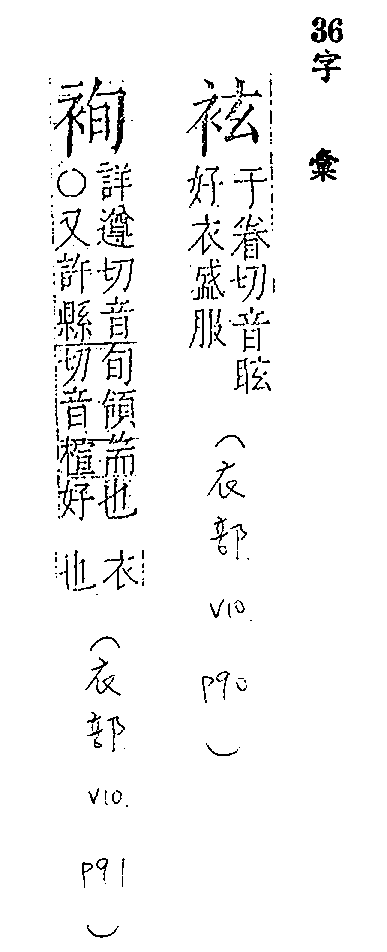 36字彙
袨
于眷切音眩
好衣盛服
(衣部 V10. P90)
袀
詳遵切音旬領耑也
○又許縣切音楦好衣
也
(衣部 V10. P91)